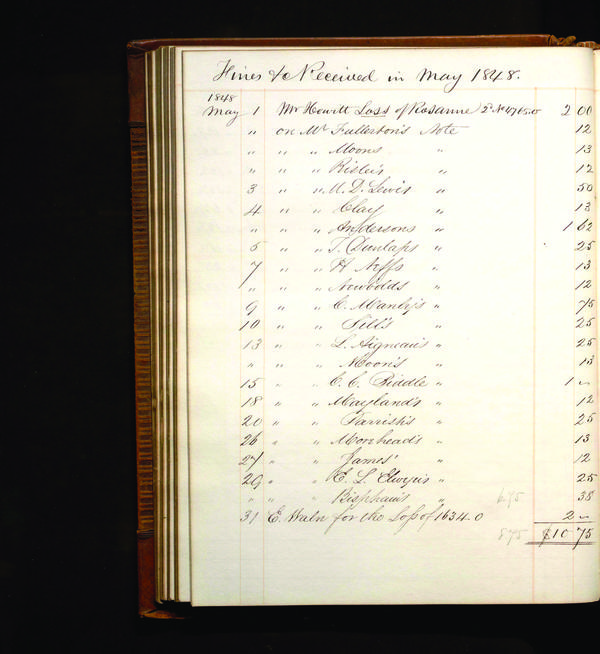 Fines &c Received in May 1848.
1848
May 1 Mr Hewitt Loss of Rosanne 2d No 4765.0 2 00
" on Mr Fullerton's Note 12
" " " Moons " 13
" " " Risley's " 12
3 " " M. D. Lewis " 50
4 " " Clay " 13
" " " Andersons " 1 62
5 " " T. Dunlaps " 25
7 " " H Neffs " 13
" " " Newbolds " 12
9 " " C. Manly's " 75
10 " " Sill's " 25
13 " " L. " 25
" " " Moon's " 13
15 " " C. C. Biddle " 1 "
18 " " Mayland's " 12
20 " " Farrish's " 25
26 " " Morehead's " 13
27 " " James' " 12
29 " " E. L. " 25
" " " Bispham's " 675 38
31 E. Waln for the Loss of 1634.0 2 "
875 $10 75